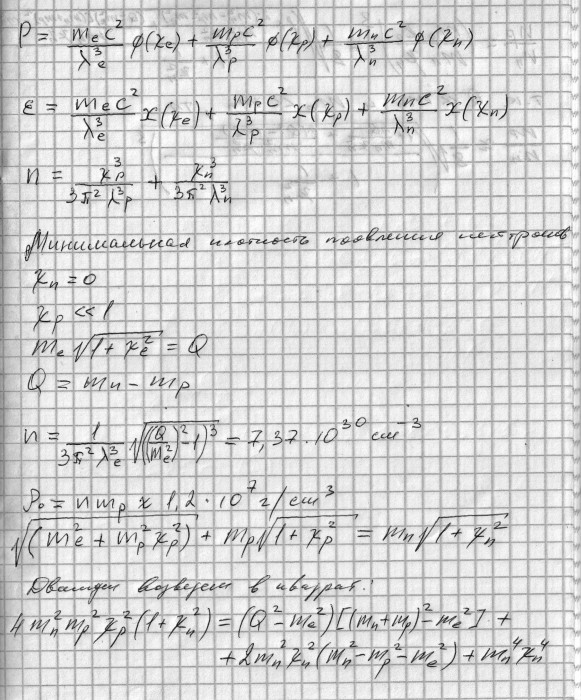 P = m_e c²/λ_e³ φ(x_e) + m_p c²/λ_p³ φ(x_p) + m_n c²/λ_n³ φ(x_n)
ε = m_e c²/λ_e³ χ(x_e) + m_p c²/λ_p³ χ(x_p) + m_n c²/λ_n³ χ(x_n)
n = x_p³/3π²λ_p³ + x_n³/3π²λ_n³
Минимальная плотность появления нейтронов
x_n = 0
x_p << 1
m_e √(1 + x_e²) = Q
Q = m_n - m_p
n = 1/3π²λ_e³ √((Q/m_e)² - 1)³ = 7,37 · 10³⁰ см⁻³
ρ₀ = n m_p ≈ 1,2 · 10⁷ г/см³
√(m_e² + m_p² x_p²) + m_p √(1 + x_p²) = m_n √(1 + x_n²)
Дважды возведем в квадрат:
4 m_n² m_p² x_p² (1 + x_n²) = (Q² - m_e²) [(m_n + m_p)² - m_e²] +
+ 2 m_n² x_n² (m_n² - m_p² - m_e²) + m_n⁴ x_n⁴